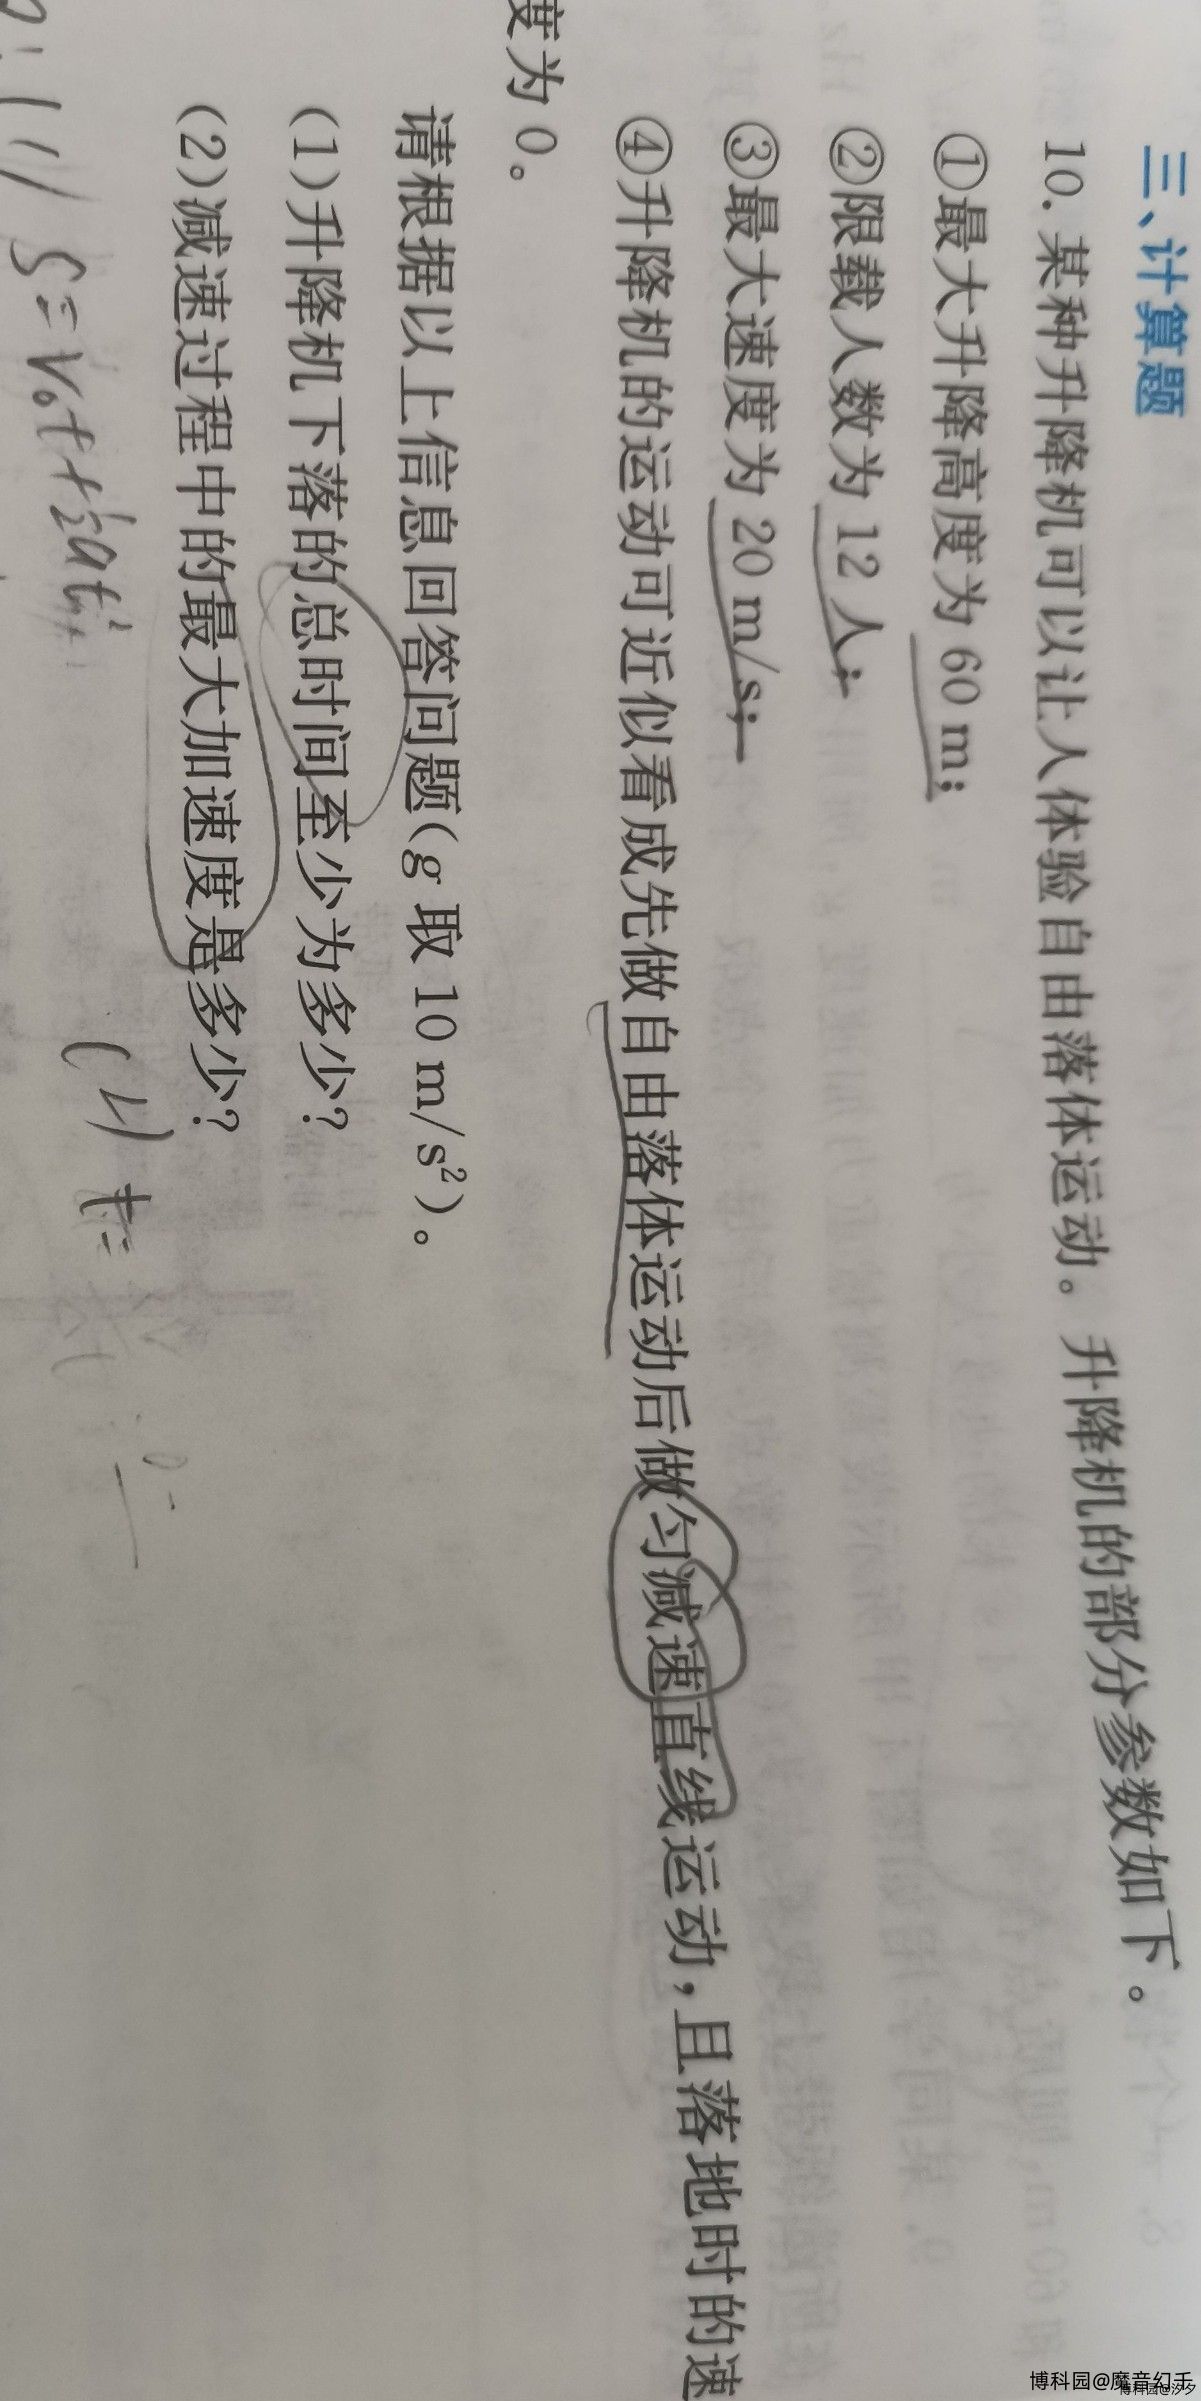 三、计算题
10. 某种升降机可以让人体验自由落体运动。升降机的部分参数如下。
①最大升降高度为 60 m;
②限载人数为 12 人;
③最大速度为 20 m/s;
④升降机的运动可近似看成先做自由落体运动后做匀减速直线运动,且落地时的速
度为 0。
请根据以上信息回答问题(g 取 10 m/s²)。
(1)升降机下落的总时间至少为多少?
(2)减速过程中的最大加速度是多少?
S=V₀t+½at²
t=
博科园@魔音幻千
博科园@汐夕